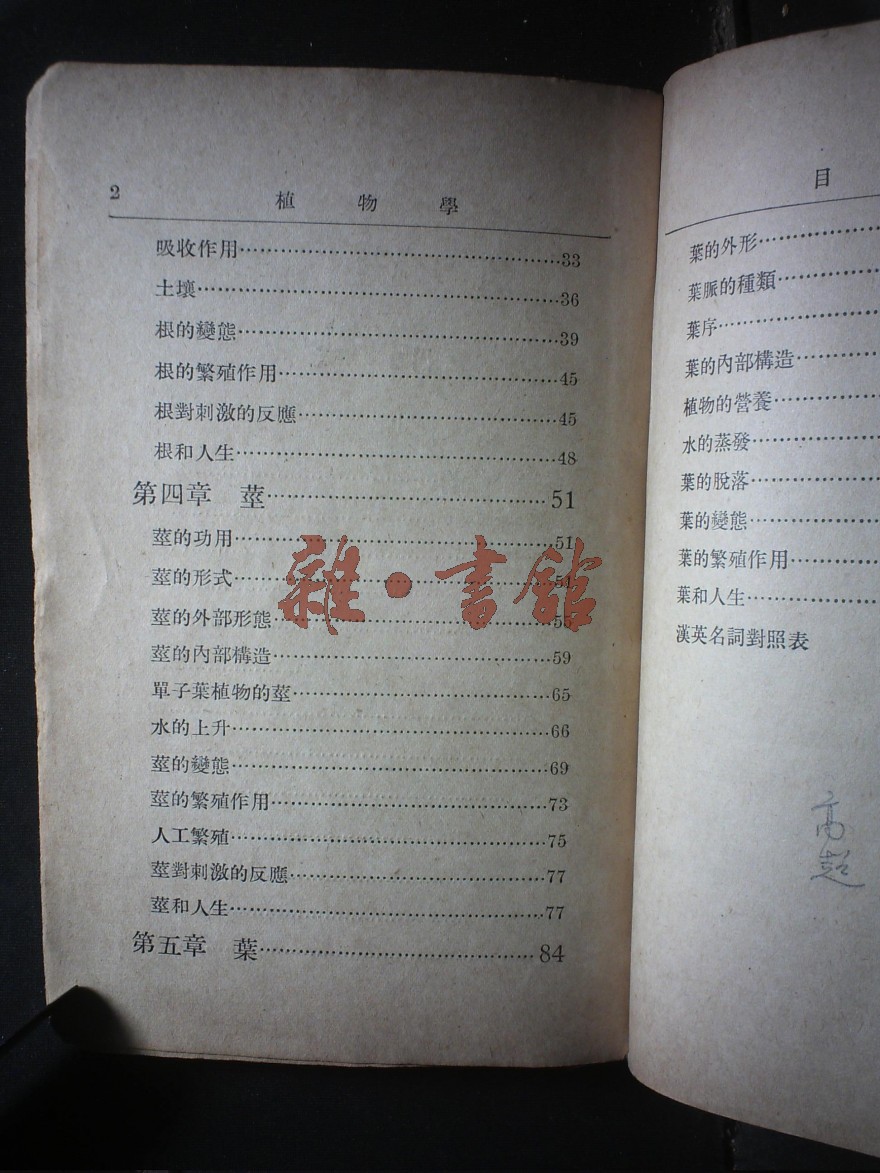 2 植物學
吸收作用……33
土壤……36
根的變態……39
根的繁殖作用……45
根對刺激的反應……45
根和人生……48
第四章 莖……51
莖的功用……51
莖的形式……51
莖的外部形態……55
莖的內部構造……59
單子葉植物的莖……65
水的上升……66
莖的變態……69
莖的繁殖作用……73
人工繁殖……75
莖對刺激的反應……77
莖和人生……77
第五章 葉……84
雜·書館
目
葉的外形……
葉脈的種類……
葉序……
葉的內部構造……
植物的營養……
水的蒸發……
葉的脫落……
葉的變態……
葉的繁殖作用……
葉和人生……
漢英名詞對照表
高超